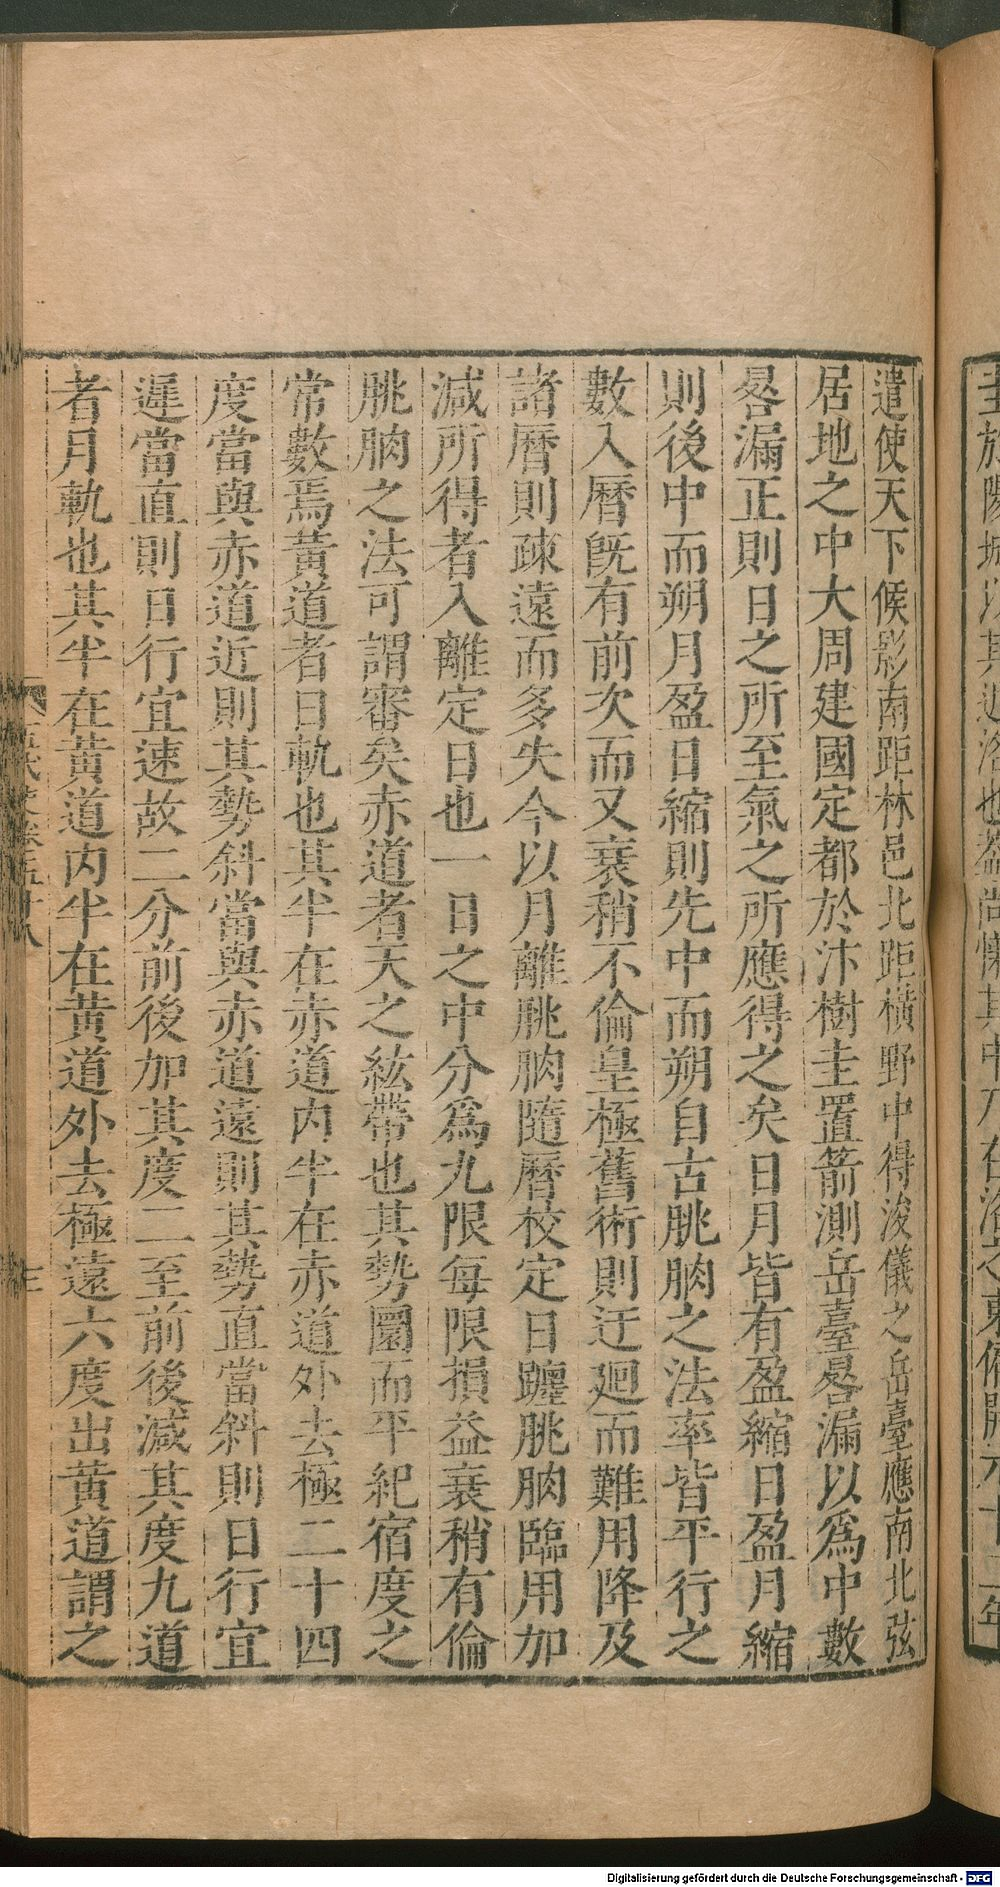 遣使天下候影南距林邑北距橫野中得浚儀之岳臺應南北弦
居地之中大周建國定都於汴樹圭置箭測岳臺晷漏以爲中數
晷漏正則日之所至氣之所應得之矣日月皆有盈縮日盈月縮
則後中而朔月盈日縮則先中而朔自古朓朒之法率皆平行之
數入曆旣有前次而又衰稍不倫皇極舊術則迂廻而難用降及
諸曆則疎遠而多失今以月離朓朒隨曆校定日躔朓朒臨用加
減所得者入離定日也一日之中分爲九限每限損益衰稍有倫
朓朒之法可謂審矣赤道者天之紘帶也其勢圜而平紀宿度之
常數焉黃道者日軌也其半在赤道內半在赤道外去極二十四
度當與赤道近則其勢斜當與赤道遠則其勢直當斜則日行宜
遲當直則日行宜速故二分前後加其度二至前後減其度九道
者月軌也其半在黃道內半在黃道外去極遠六度出黃道謂之
Digitalisierung gefördert durch die Deutsche Forschungsgemeinschaft - DFG